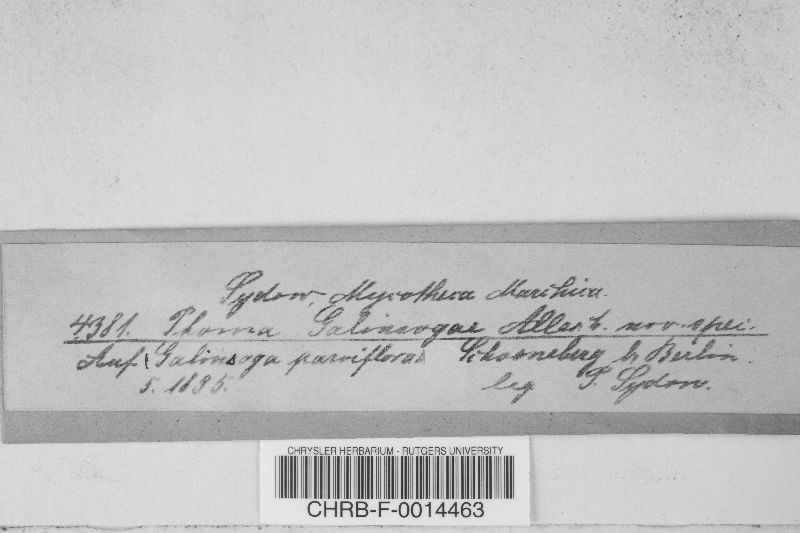 Sydow, Mycotheca Marchica.
4381. Phoma Galinsogae Allesch. nov. spec.
Auf Galinsoga parviflora Schoeneberg b. Berlin.
5. 1895. leg P. Sydow.
CHRYSLER HERBARIUM - RUTGERS UNIVERSITY
CHRB-F-0014463